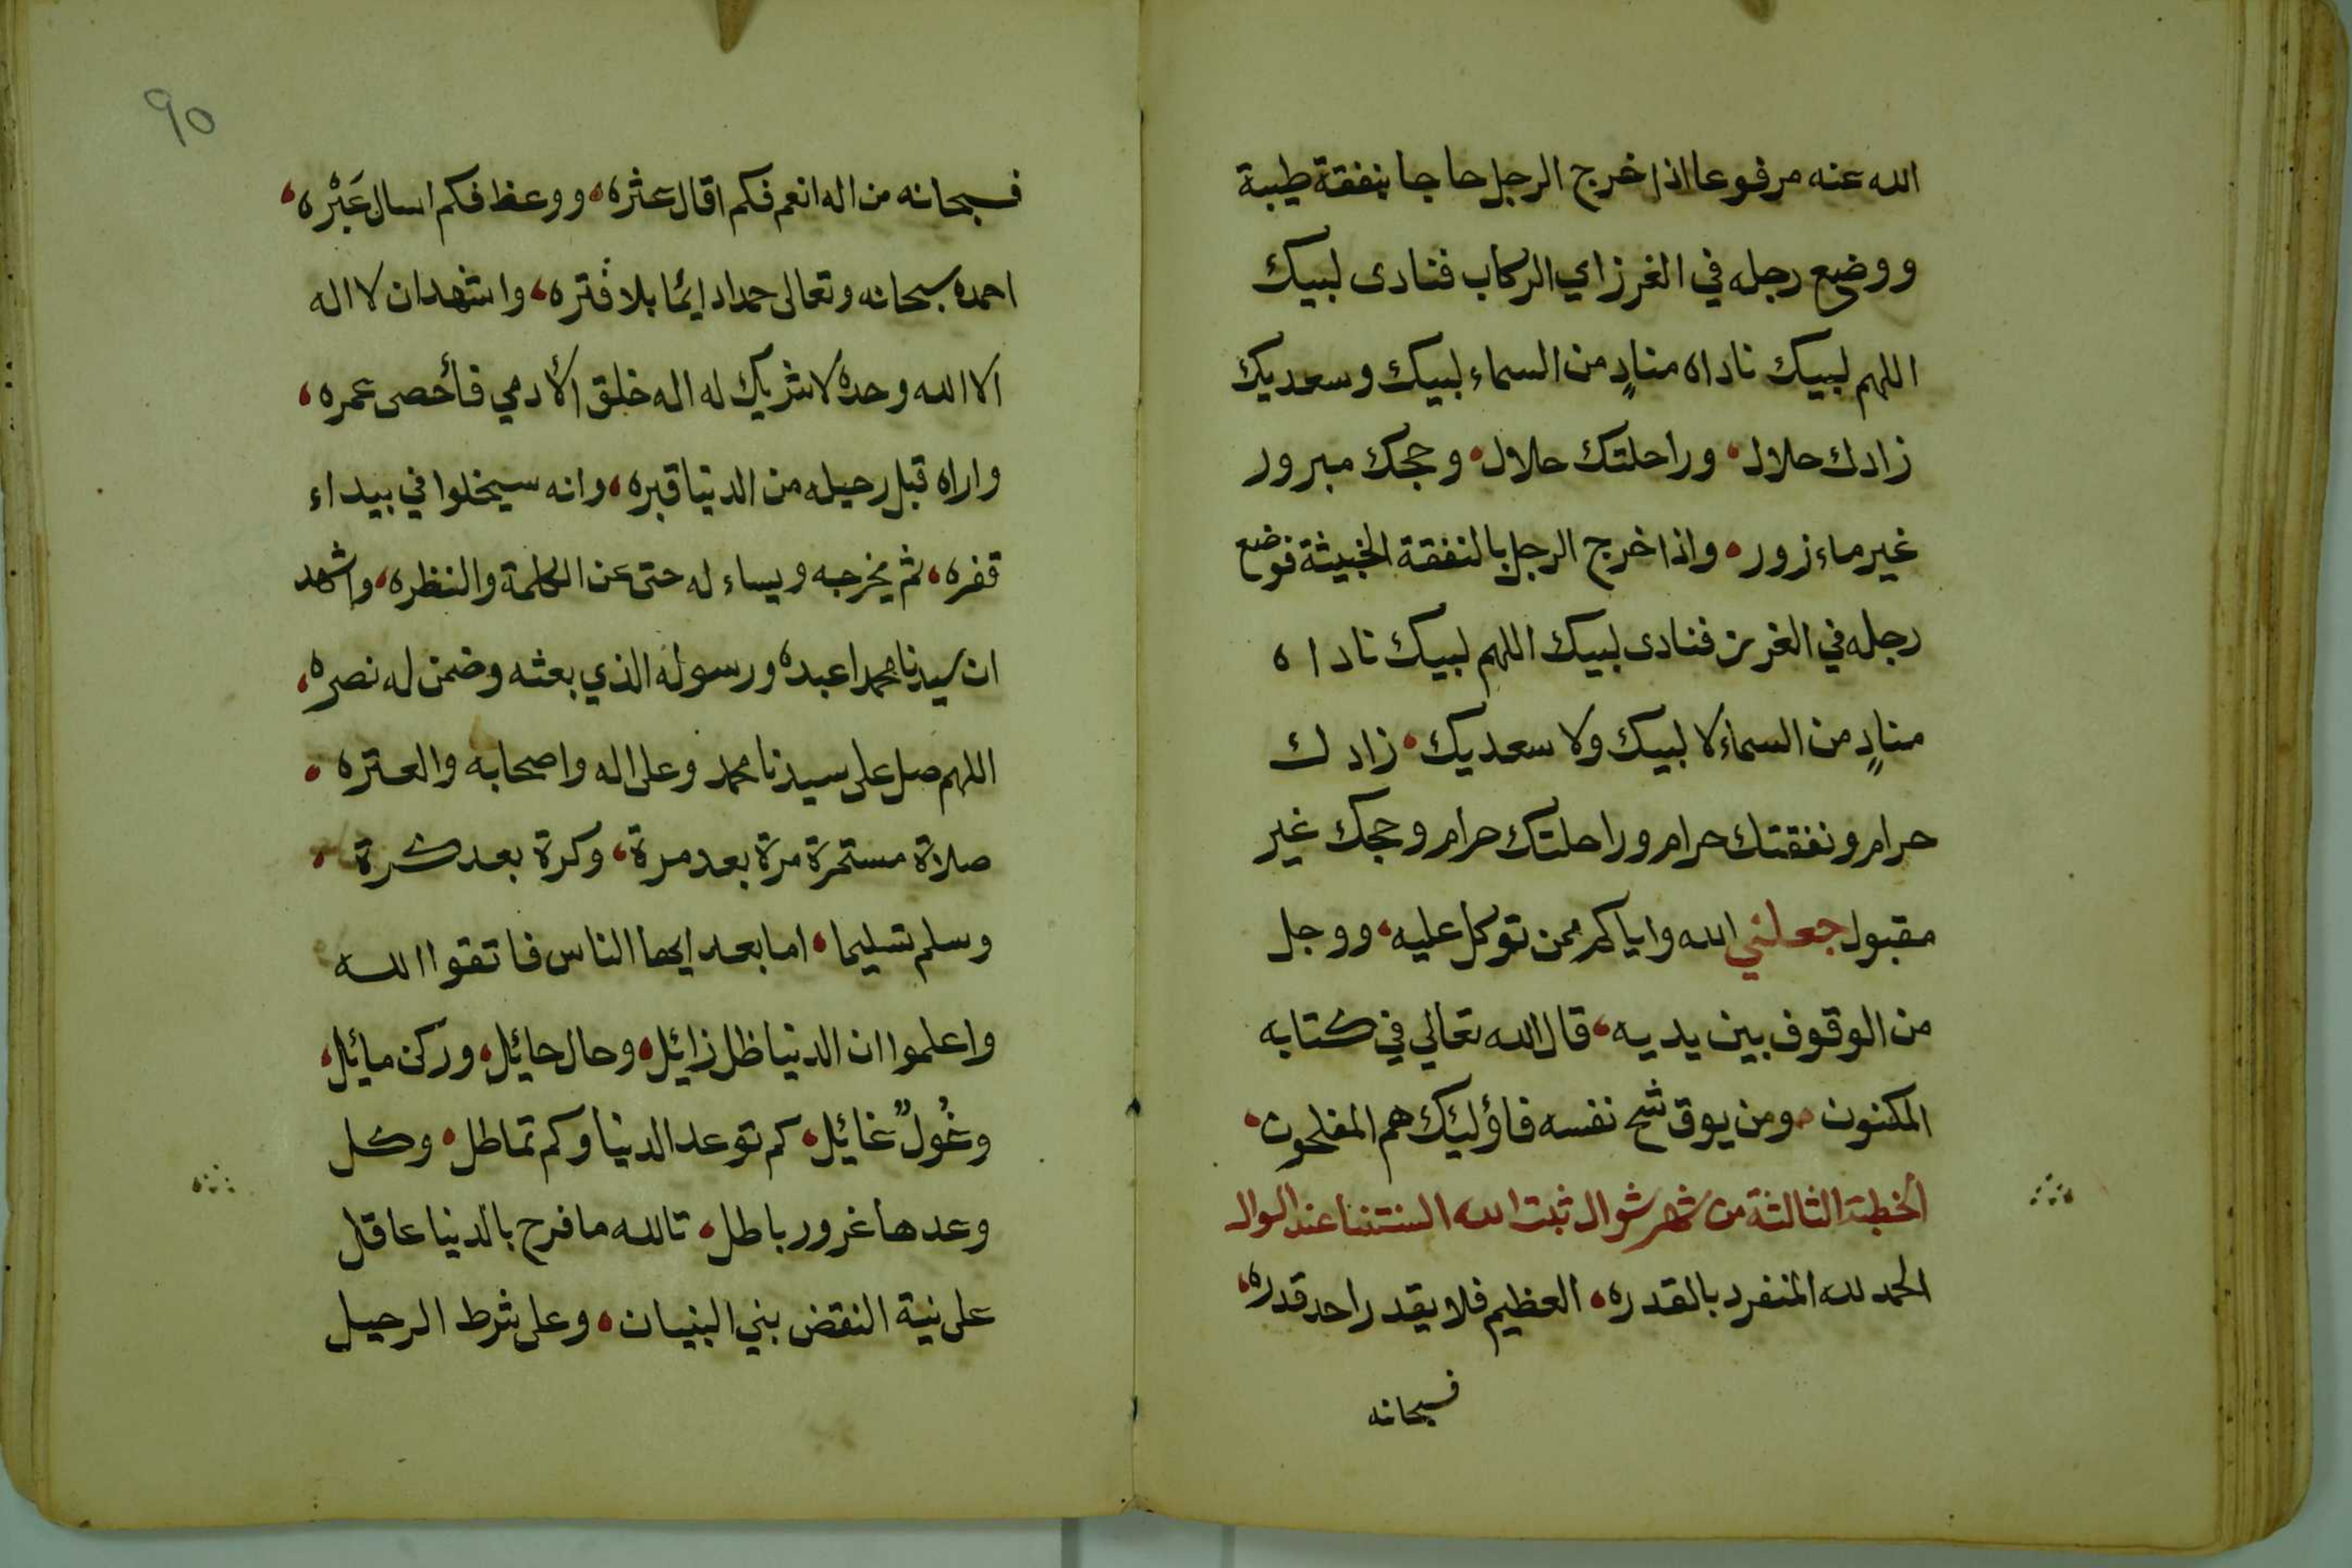 الله عنه مرفوعا اذا خرج الرجل حاجا بنفقة طيبة
ووضع رجله في الغرز اي الركاب فنادى لبيك
اللهم لبيك ناداه منادٍ من السماء لبيك وسعديك
زادك حلال، وراحلتك حلال، وحجك مبرور
غير مازور، واذا خرج الرجل بالنفقة الخبيثة فوضع
رجله في الغرز فنادى لبيك اللهم لبيك ناداه
منادٍ من السماء لا لبيك ولا سعديك، زادك
حرام ونفقتك حرام وراحلتك حرام وحجك غير
مقبول جعلني الله واياكم ممن توكل عليه، ووجل
من الوقوف بين يديه، قال الله تعالي في كتابه
المكنون، ومن يوق شح نفسه فاؤليك هم المفلحون،
الخطبة الثالثة من شهر شوال ثبت الله السنتنا عند السوال
الحمد لله المنفرد بالقدره، العظيم فلا يقدر احد قدره،
فسبحانه
٩٥
فسبحانه من اله انعم فكم اقال عثره، ووعظ فكم اسال عَبْره،
احمده سبحانه وتعالى حمدا دايما بلا فتره، واشهد ان لا اله
الا الله وحده لا شريك له اله خلق الأدمي فأحصى عمره،
واراه قبل رحيله من الدنيا قبره، وانه سيخلوا في بيداء
قفره، ثم يخرجه ويساءله حتى عن الكلمة والنظره، واشهد
ان سيدنا محمدا عبده ورسوله الذي بعثه وضمن له نصره،
اللهم صل على سيدنا محمد وعلى اله واصحابه والعتره،
صلاة مستمرة مرة بعد مرة، وكرة بعد كرة،
وسلم تسليما، اما بعد ايها الناس فاتقوا الله
واعلموا ان الدنيا ظل زائل، وحال حائل، وركن مائل،
وغُولٌ غائل، كم توعد الدنيا وكم تماطل، وكل
وعدها غرور باطل، تالله ما فرح بالدنيا عاقل
على نية النقض بني البنيان، وعلى شرط الرحيل